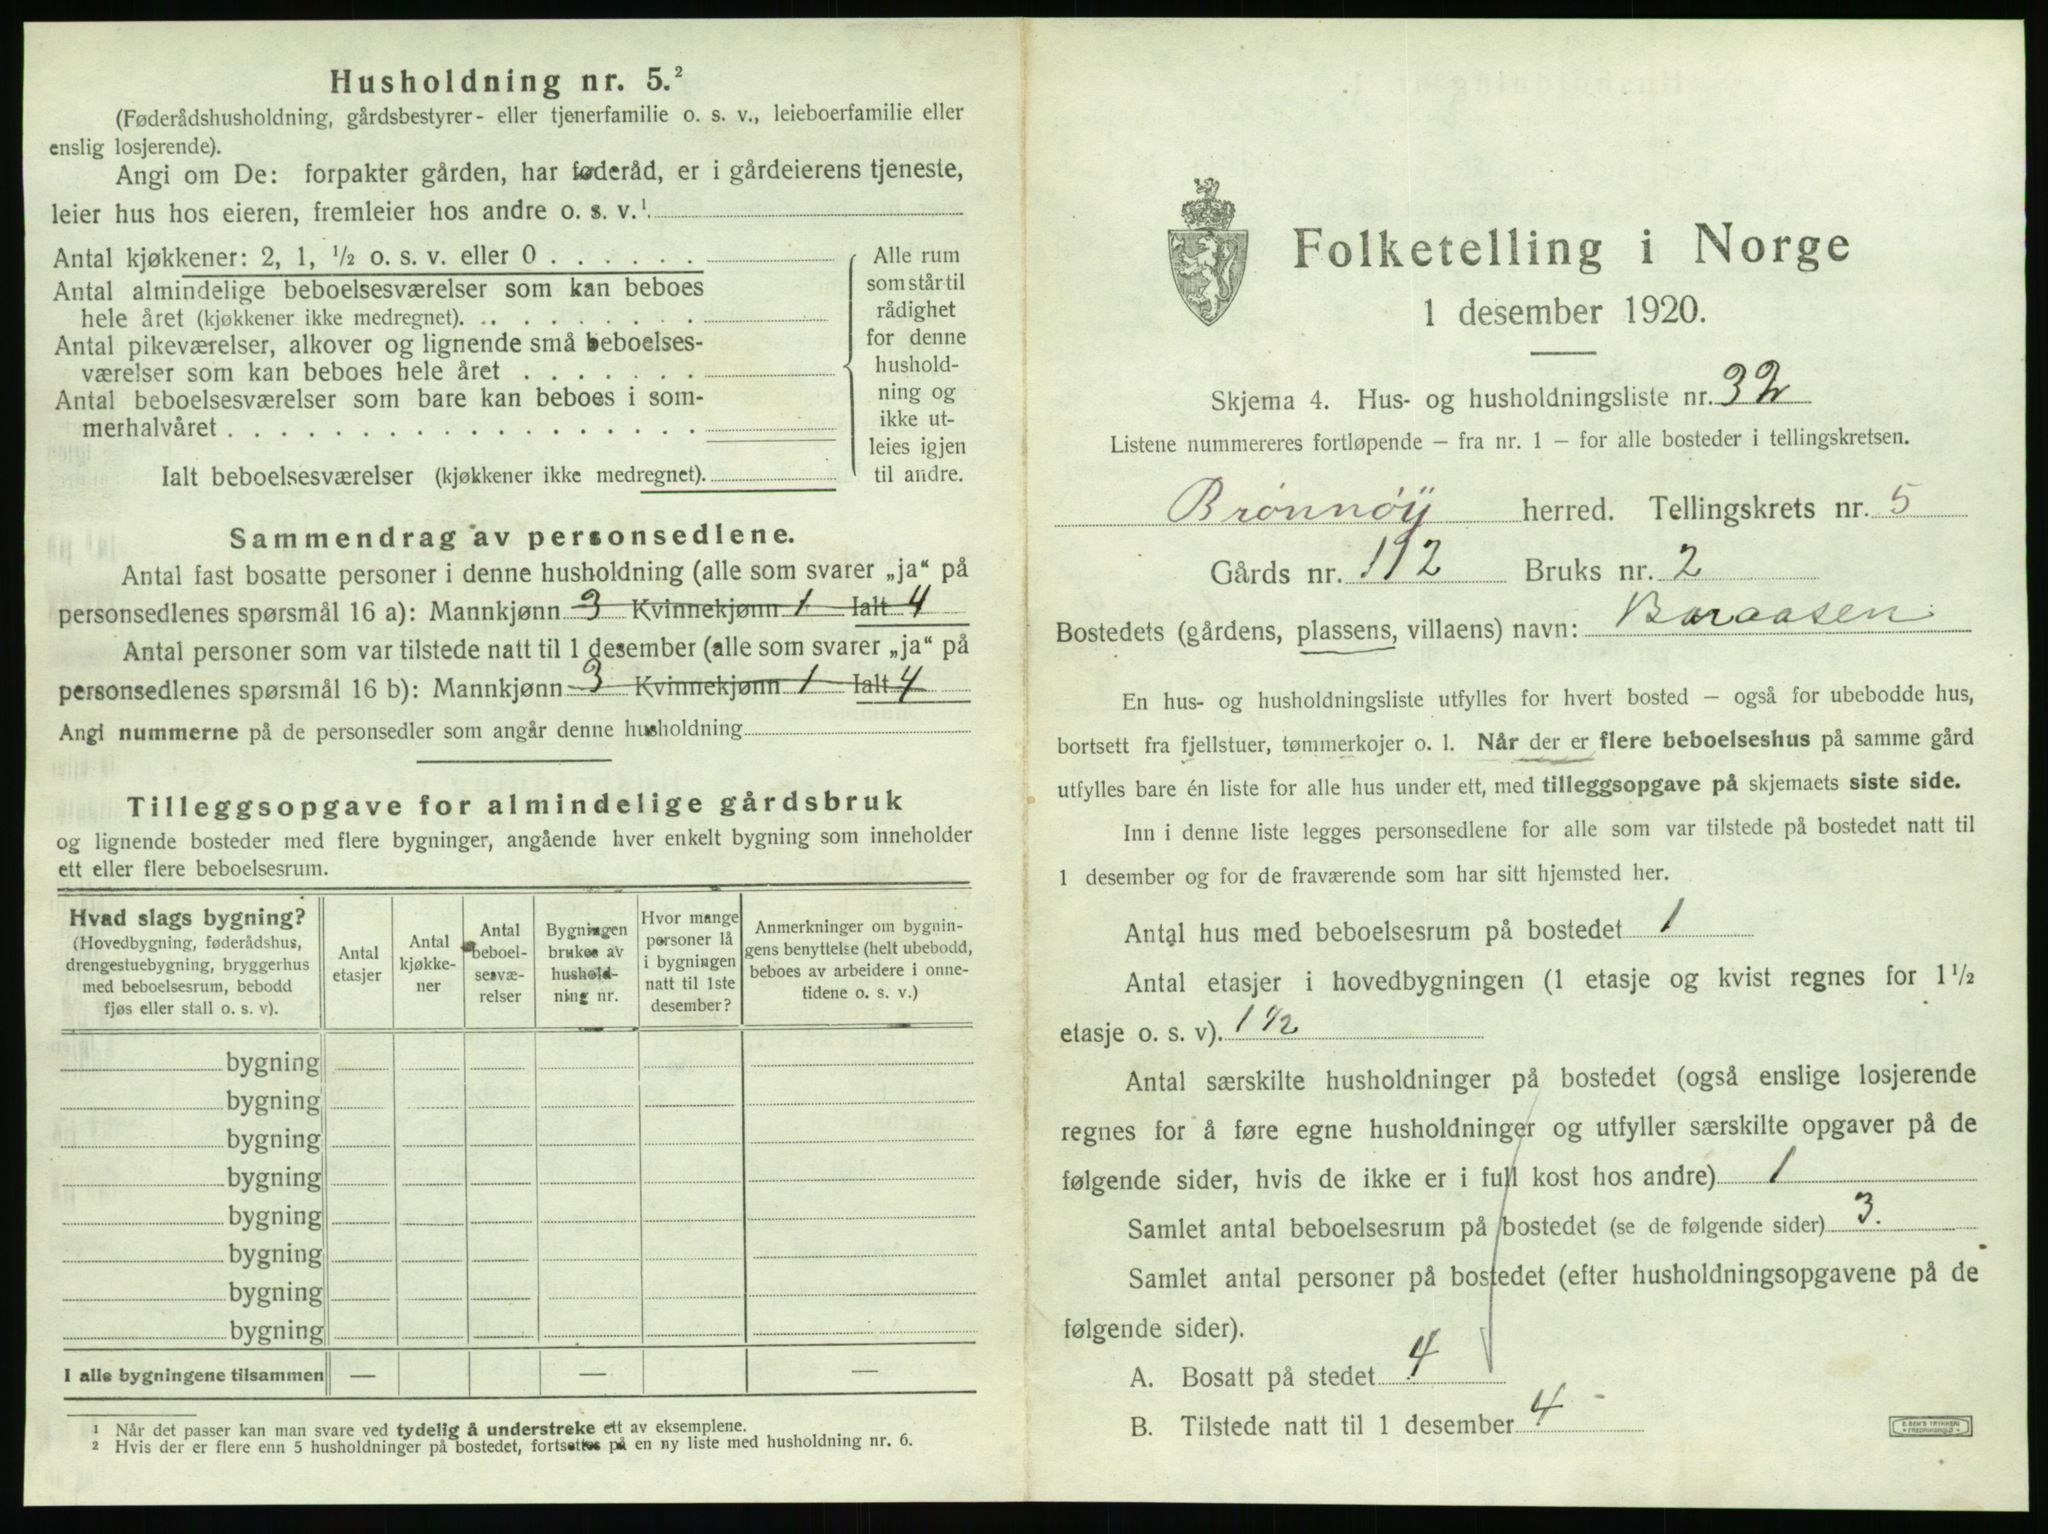 Husholdning nr. 5.²
(Føderådshusholdning, gårdsbestyrer- eller tjenerfamilie o. s. v., leieboerfamilie eller
enslig losjerende).
Angi om De: forpakter gården, har føderåd, er i gårdeierens tjeneste,
leier hus hos eieren, fremleier hos andre o. s. v.¹
Antal kjøkkener: 2, 1, ½ o. s. v. eller 0 . . . . . .
Antal almindelige beboelsesværelser som kan beboes
hele året (kjøkkener ikke medregnet). . . . . . . . .
Antal pikeværelser, alkover og lignende små beboelses-
værelser som kan beboes hele året . . . . . . .
Antal beboelsesværelser som bare kan beboes i som-
merhalvåret . . . . . . . . . . . . . . . . . .
Ialt beboelsesværelser (kjøkkener ikke medregnet).
Alle rum
som står til
rådighet
for denne
hushold-
ning og
ikke ut-
leies igjen
til andre.
Sammendrag av personsedlene.
Antal fast bosatte personer i denne husholdning (alle som svarer „ja“ på
personsedlenes spørsmål 16 a): Mannkjønn 3 Kvinnekjønn 1 Ialt 4
Antal personer som var tilstede natt til 1 desember (alle som svarer „ja“ på
personsedlenes spørsmål 16 b): Mannkjønn 3 Kvinnekjønn 1 Ialt 4
Angi nummerne på de personsedler som angår denne husholdning
Tilleggsopgave for almindelige gårdsbruk
og lignende bosteder med flere bygninger, angående hver enkelt bygning som inneholder
ett eller flere beboelsesrum.
Hvad slags bygning?
(Hovedbygning, føderådshus,
drengestuebygning, bryggerhus
med beboelsesrum, bebodd
fjøs eller stall o. s. v).
Antal
etasjer
Antal
kjøkke-
ner
Antal
beboel-
sesvæ-
relser
Bygningen
brukes av
hushold-
ning nr.
Hvor mange
personer lå
i bygningen
natt til 1ste
desember?
Anmerkninger om bygnin-
gens benyttelse (helt ubebodd,
beboes av arbeidere i onne-
tidene o. s. v.)
bygning
bygning
bygning
bygning
bygning
bygning
bygning
bygning
I alle bygningene tilsammen — — —
¹ Når det passer kan man svare ved tydelig å understreke ett av eksemplene.
² Hvis der er flere enn 5 husholdninger på bostedet, fortsettes på en ny liste med husholdning nr. 6.
Folketelling i Norge
1 desember 1920.
Skjema 4. Hus- og husholdningsliste nr. 32
Listene nummereres fortløpende – fra nr. 1 – for alle bosteder i tellingskretsen.
Brønnøy herred. Tellingskrets nr. 5
Gårds nr. 192 Bruks nr. 2
Bostedets (gårdens, plassens, villaens) navn: Baraasen
En hus- og husholdningsliste utfylles for hvert bosted – også for ubebodde hus,
bortsett fra fjellstuer, tømmerkojer o. l. Når der er flere beboelseshus på samme gård
utfylles bare én liste for alle hus under ett, med tilleggsopgave på skjemaets siste side.
Inn i denne liste legges personsedlene for alle som var tilstede på bostedet natt til
1 desember og for de fraværende som har sitt hjemsted her.
Antal hus med beboelsesrum på bostedet 1
Antal etasjer i hovedbygningen (1 etasje og kvist regnes for 1½
etasje o. s. v). 1½
Antal særskilte husholdninger på bostedet (også enslige losjerende
regnes for å føre egne husholdninger og utfyller særskilte opgaver på de
følgende sider, hvis de ikke er i full kost hos andre) 1
Samlet antal beboelsesrum på bostedet (se de følgende sider) 3.
Samlet antal personer på bostedet (efter husholdningsopgavene på de
følgende sider).
A. Bosatt på stedet 4
B. Tilstede natt til 1 desember 4